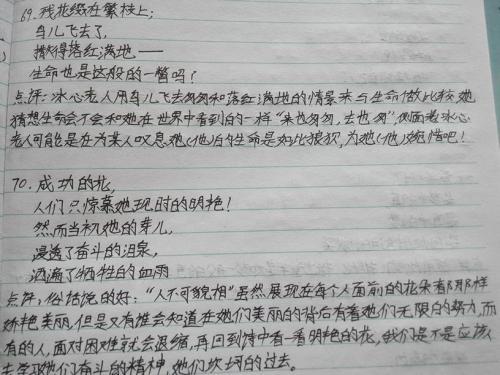 69.残花缀在繁枝上;
鸟儿飞去了,
撒得落红满地——
生命也是这般的一瞥吗?
点评:冰心老人用鸟儿飞去匆匆和落红满地的情景来与生命做比较,她
猜想生命会不会和她在世界中看到的一样“来也匆匆,去也匆”,侧面老冰心
老人可能是在为某人叹息她(他)的生命是如此狼狈,为她(他)惋惜吧!
70.成功的花,
人们只惊慕她现时的明艳!
然而当初她的芽儿,
浸透了奋斗的泪泉,
洒遍了牺牲的血雨
点评:俗话说的好:“人不可貌相”虽然展现在每个人面前的花朵有那那样
娇艳美丽,但是又有谁会知道在她们美丽的背后有着她们无限的努力,而
有的人,面对困难就会退缩,再回到诗中看一看明艳的花,我们是不是应该
去学习她们奋斗的精神,她们坎坷的过去。